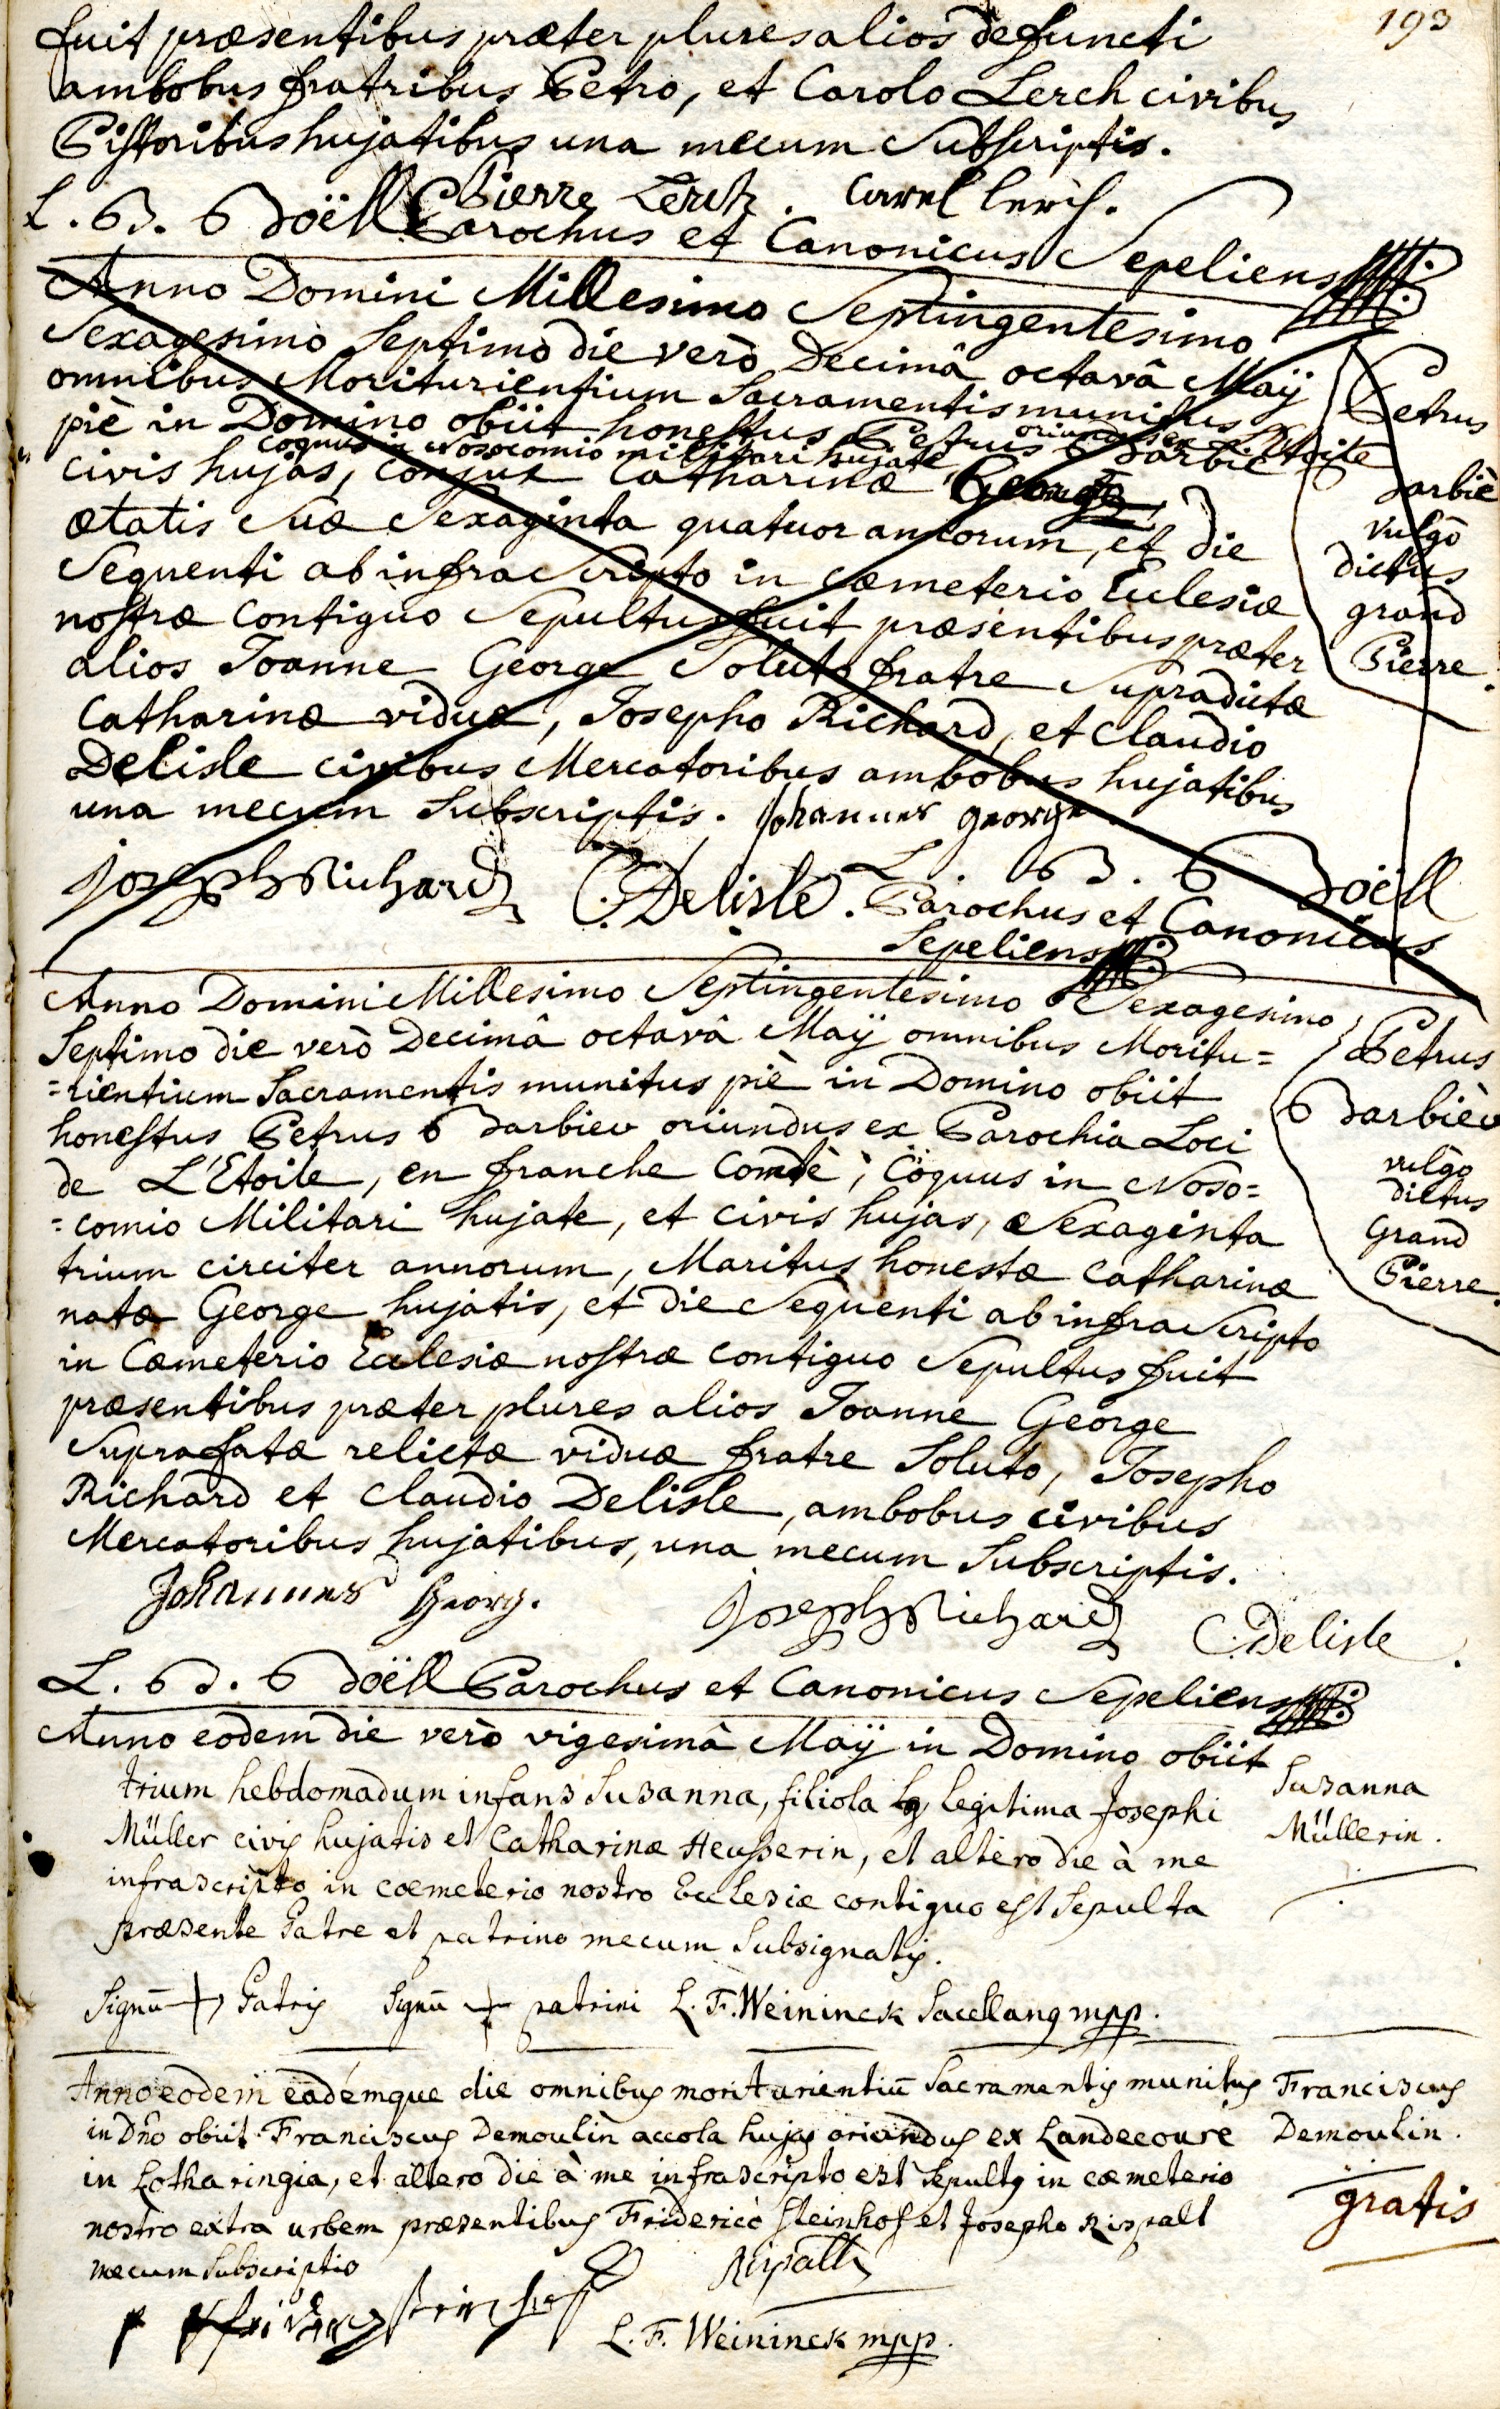 193
fuit præsentibus præter plures alios defuncti
ambobus fratribus Petro, et Carolo Lerch civibus
Pistoribus hujatibus una mecum Subscriptis.
Pierre Lerch. Carel Lerch.
L. B. Boëll Parochus et Canonicus Sepeliens
Anno Domini Millesimo Septingentesimo
Sexagesimo Septimo die verò Decimâ octavâ Maÿ
omnibus Moriturientium Sacramentis munitus
piè in Domino obiit honestus Petrus Barbie
oriundus ex
coquus in Nosocomio militari hujate
civis hujas, conjux Catharinæ George,
ætatis Suæ Sexaginta quatuor annorum, et die
Sequenti ab infra Scripto in Cæmeterio Eclesiæ
nostræ Contiguo Sepultus fuit præsentibus præter
alios Joanne George Soluto fratre Supradictæ
Catharinæ viduæ, Josepho Richard, et Claudio
Delisle civibus Mercatoribus ambobus hujatibus
una mecum Subscriptis. Johannes george
Petrus
Barbiè
vulgò
dictus
grand
Pierre.
Joseph Richard C. Delisle. L. B. Boëll
Parochus et Canonicus
Sepeliens
Anno Domini Millesimo Septingentesimo Sexagesimo
Septimo die verò Decimâ octavâ Maÿ omnibus Moritu=
=rientium Sacramentis munitus piè in Domino obiit
honestus Petrus Barbiev oriundus ex Parochia Loci
de L'Etoile, en franche Comtè, Coquus in Noso=
=comio Militari hujate, et civis hujas, Sexaginta
trium circiter annorum, Maritus honestæ Catharinæ
natæ George hujatis, et die Sequenti ab infra Scripto
in Cæmeterio Eclesiæ nostræ Contiguo Sepultus fuit
præsentibus præter plures alios Joanne George
Suprafatæ relictæ viduæ fratre Soluto, Josepho
Richard et Claudio Delisle, ambobus civibus
Mercatoribus hujatibus, una mecum Subscriptis.
Petrus
Barbièv
vulgò
dictus
Grand
Pierre.
Johannes Georg. Joseph Richard C. Delisle.
L. B. Boëll Parochus et Canonicus Sepeliens
Anno eodem die verò vigesimâ Maÿ in Domino obiit
trium hebdomadum infans Susanna, filiola legitima Josephi
Müller civis hujatis et Catharinæ Heusserin, et altero die à me
infrascripto in cœmeterio nostro Ecclesiæ contiguo est Sepulta
præsente Patre et patrino mecum Subsignatis.
Susanna
Müllerin.
Signū + Patris Signū + patrini L. F. Weininck Sacellanus mpp.
Anno eodem eâdémque die omnibus moriturientiū Sacramentis munitus
in Dno obiit Franciscus Demoulin accola hujas oriundus ex Landecourt
in Lotharingia, et altero die à me infrascripto est Sepultus in cœmeterio
nostro extra urbem præsentibus Friderico Steinhof et Josepho Rispalt
mecum Subscriptis
Franciscus
Demoulin.
gratis
Rispalt
L. F. Weininck mpp.